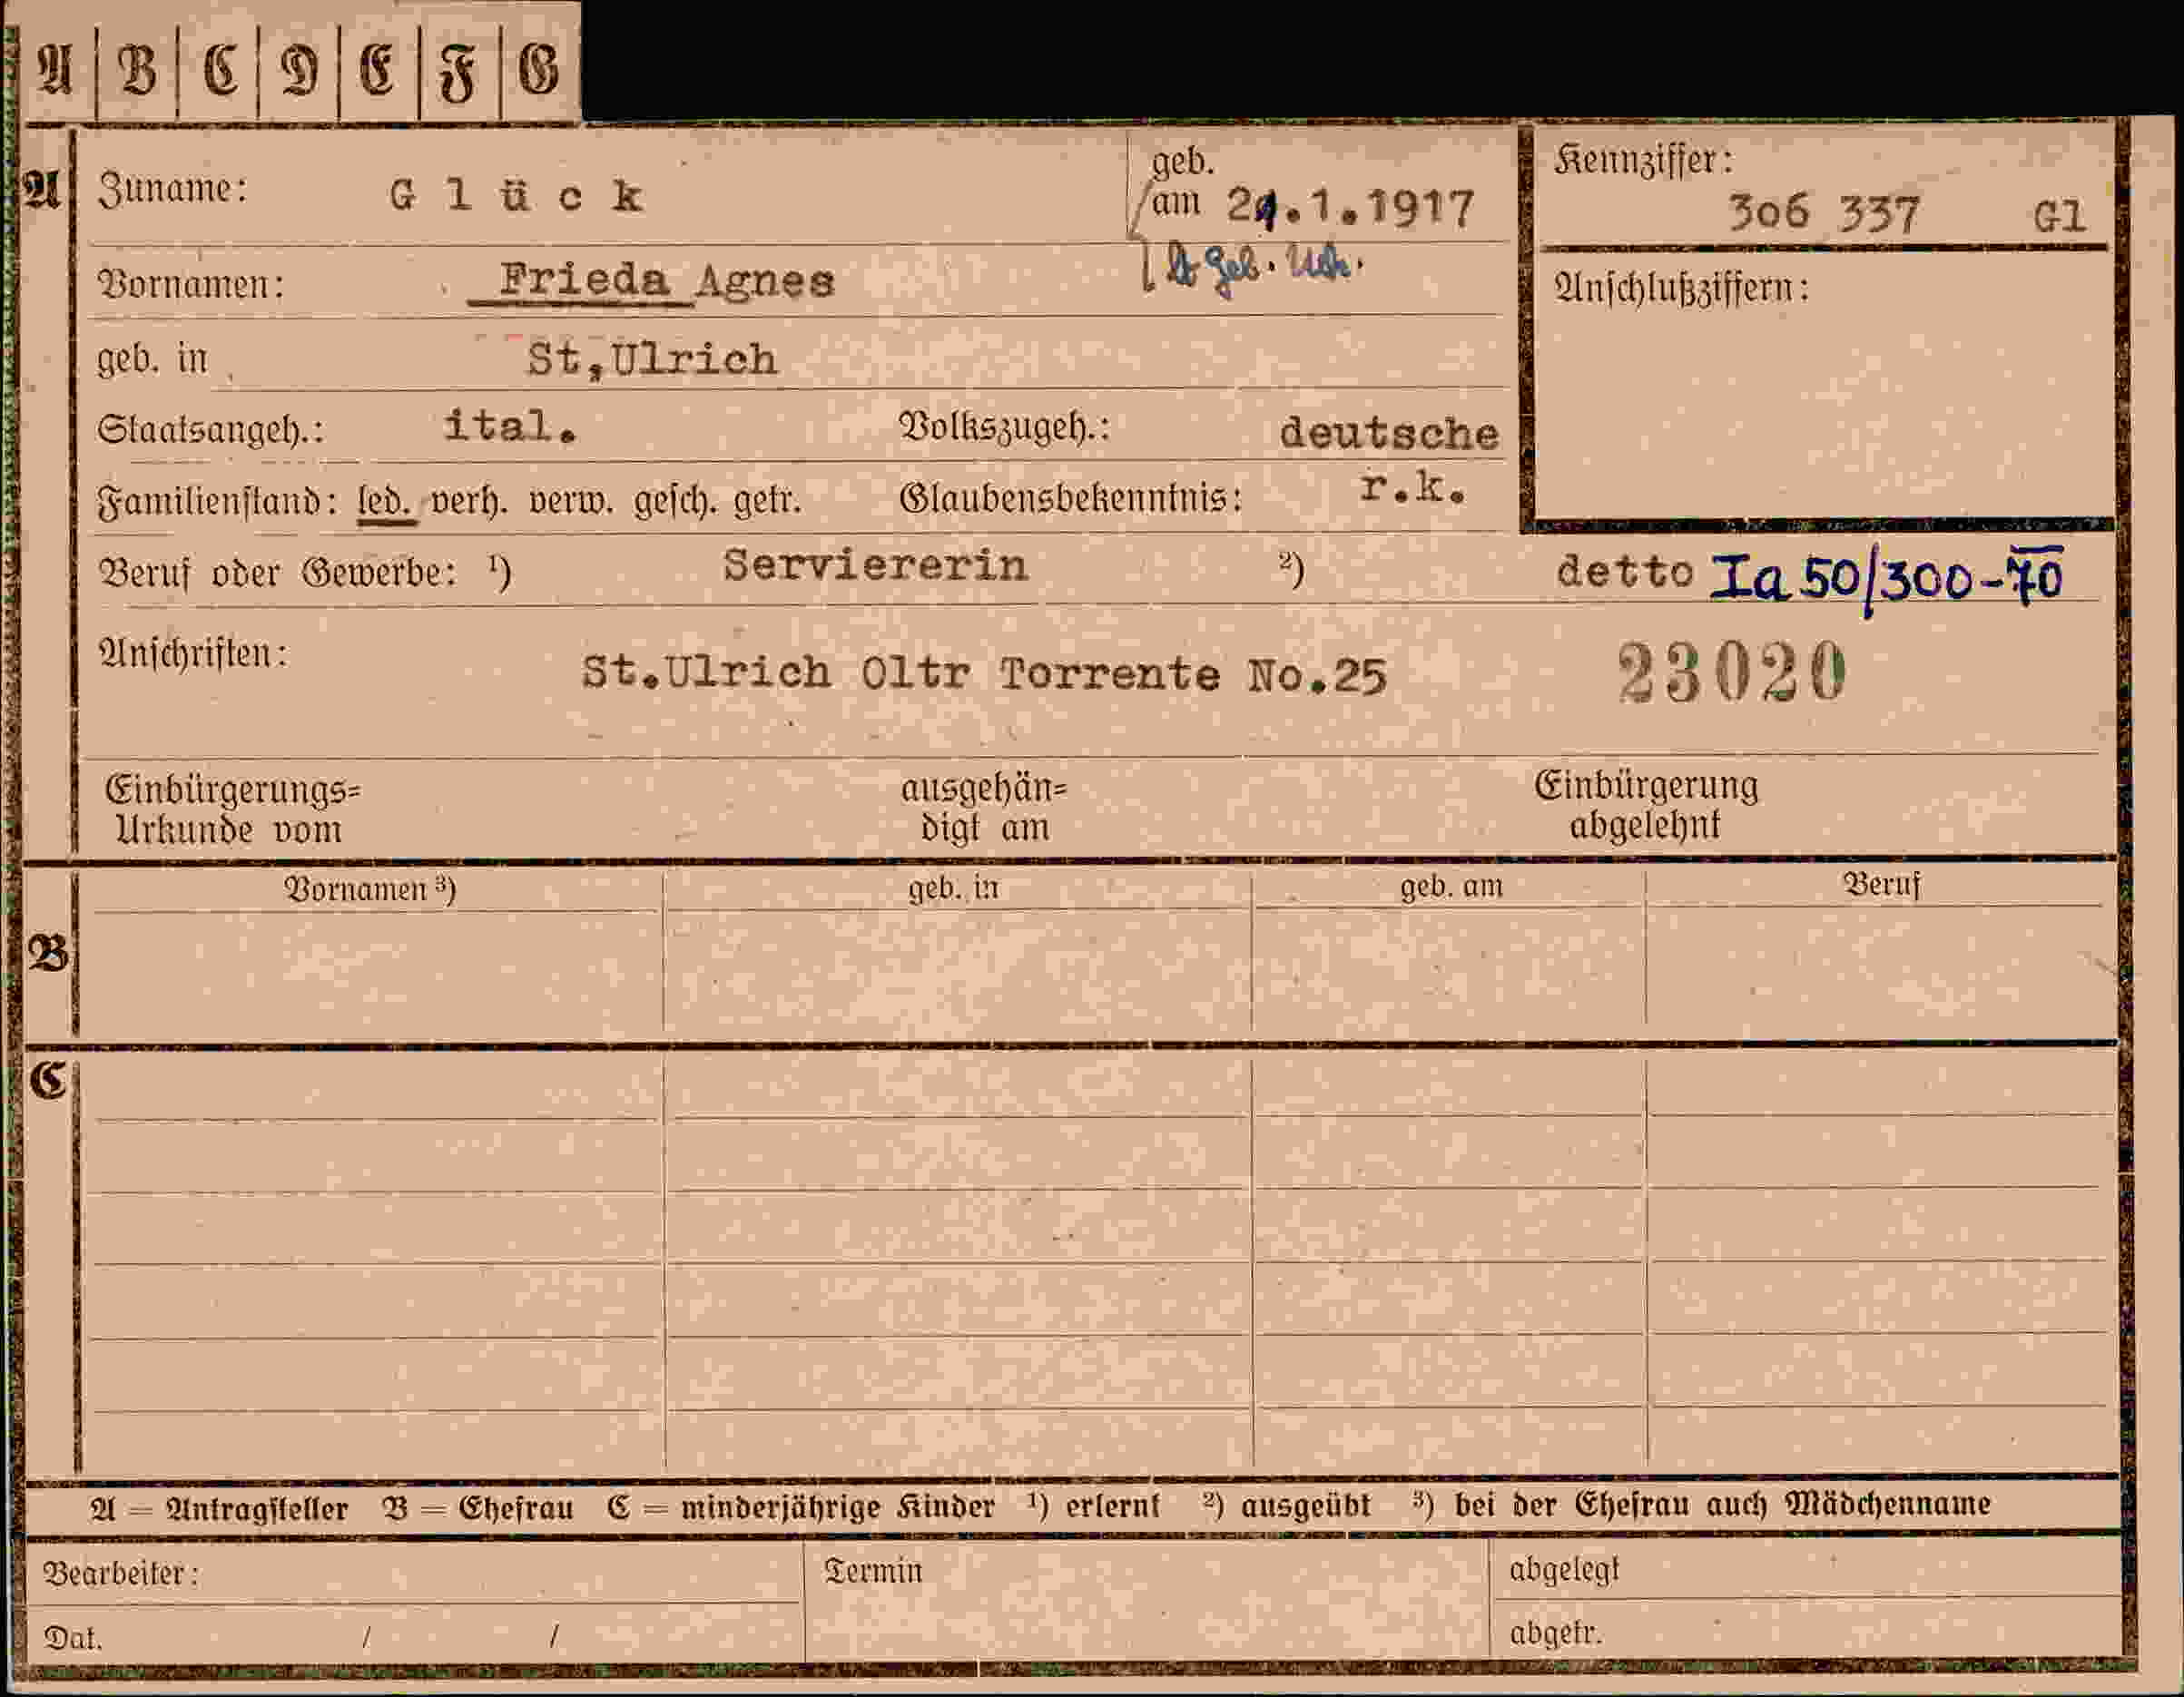 A B C D E F G
A Zuname: Glück geb. am 21.1.1917 Kennziffer: 306 337 Gl
lt geb. Urk.
Vornamen: Frieda Agnes Anschlußziffern:
geb. in St,Ulrich
Staatsangeh.: ital. Volkszugeh.: deutsche
Familienstand: led. verh. verw. gesch. getr. Glaubensbekenntnis: r.k.
Beruf oder Gewerbe: ¹) Serviererin ²) detto Ia 50/300-70
Anschriften: St.Ulrich Oltr Torrente No.25 23020
Einbürgerungs= ausgehän= Einbürgerung
Urkunde vom digt am abgelehnt
B Vornamen ³) geb. in geb. am Beruf
C
A = Antragsteller B = Ehefrau C = minderjährige Kinder ¹) erlernt ²) ausgeübt ³) bei der Ehefrau auch Mädchenname
Bearbeiter: Termin abgelegt
Dat. / / abgetr.